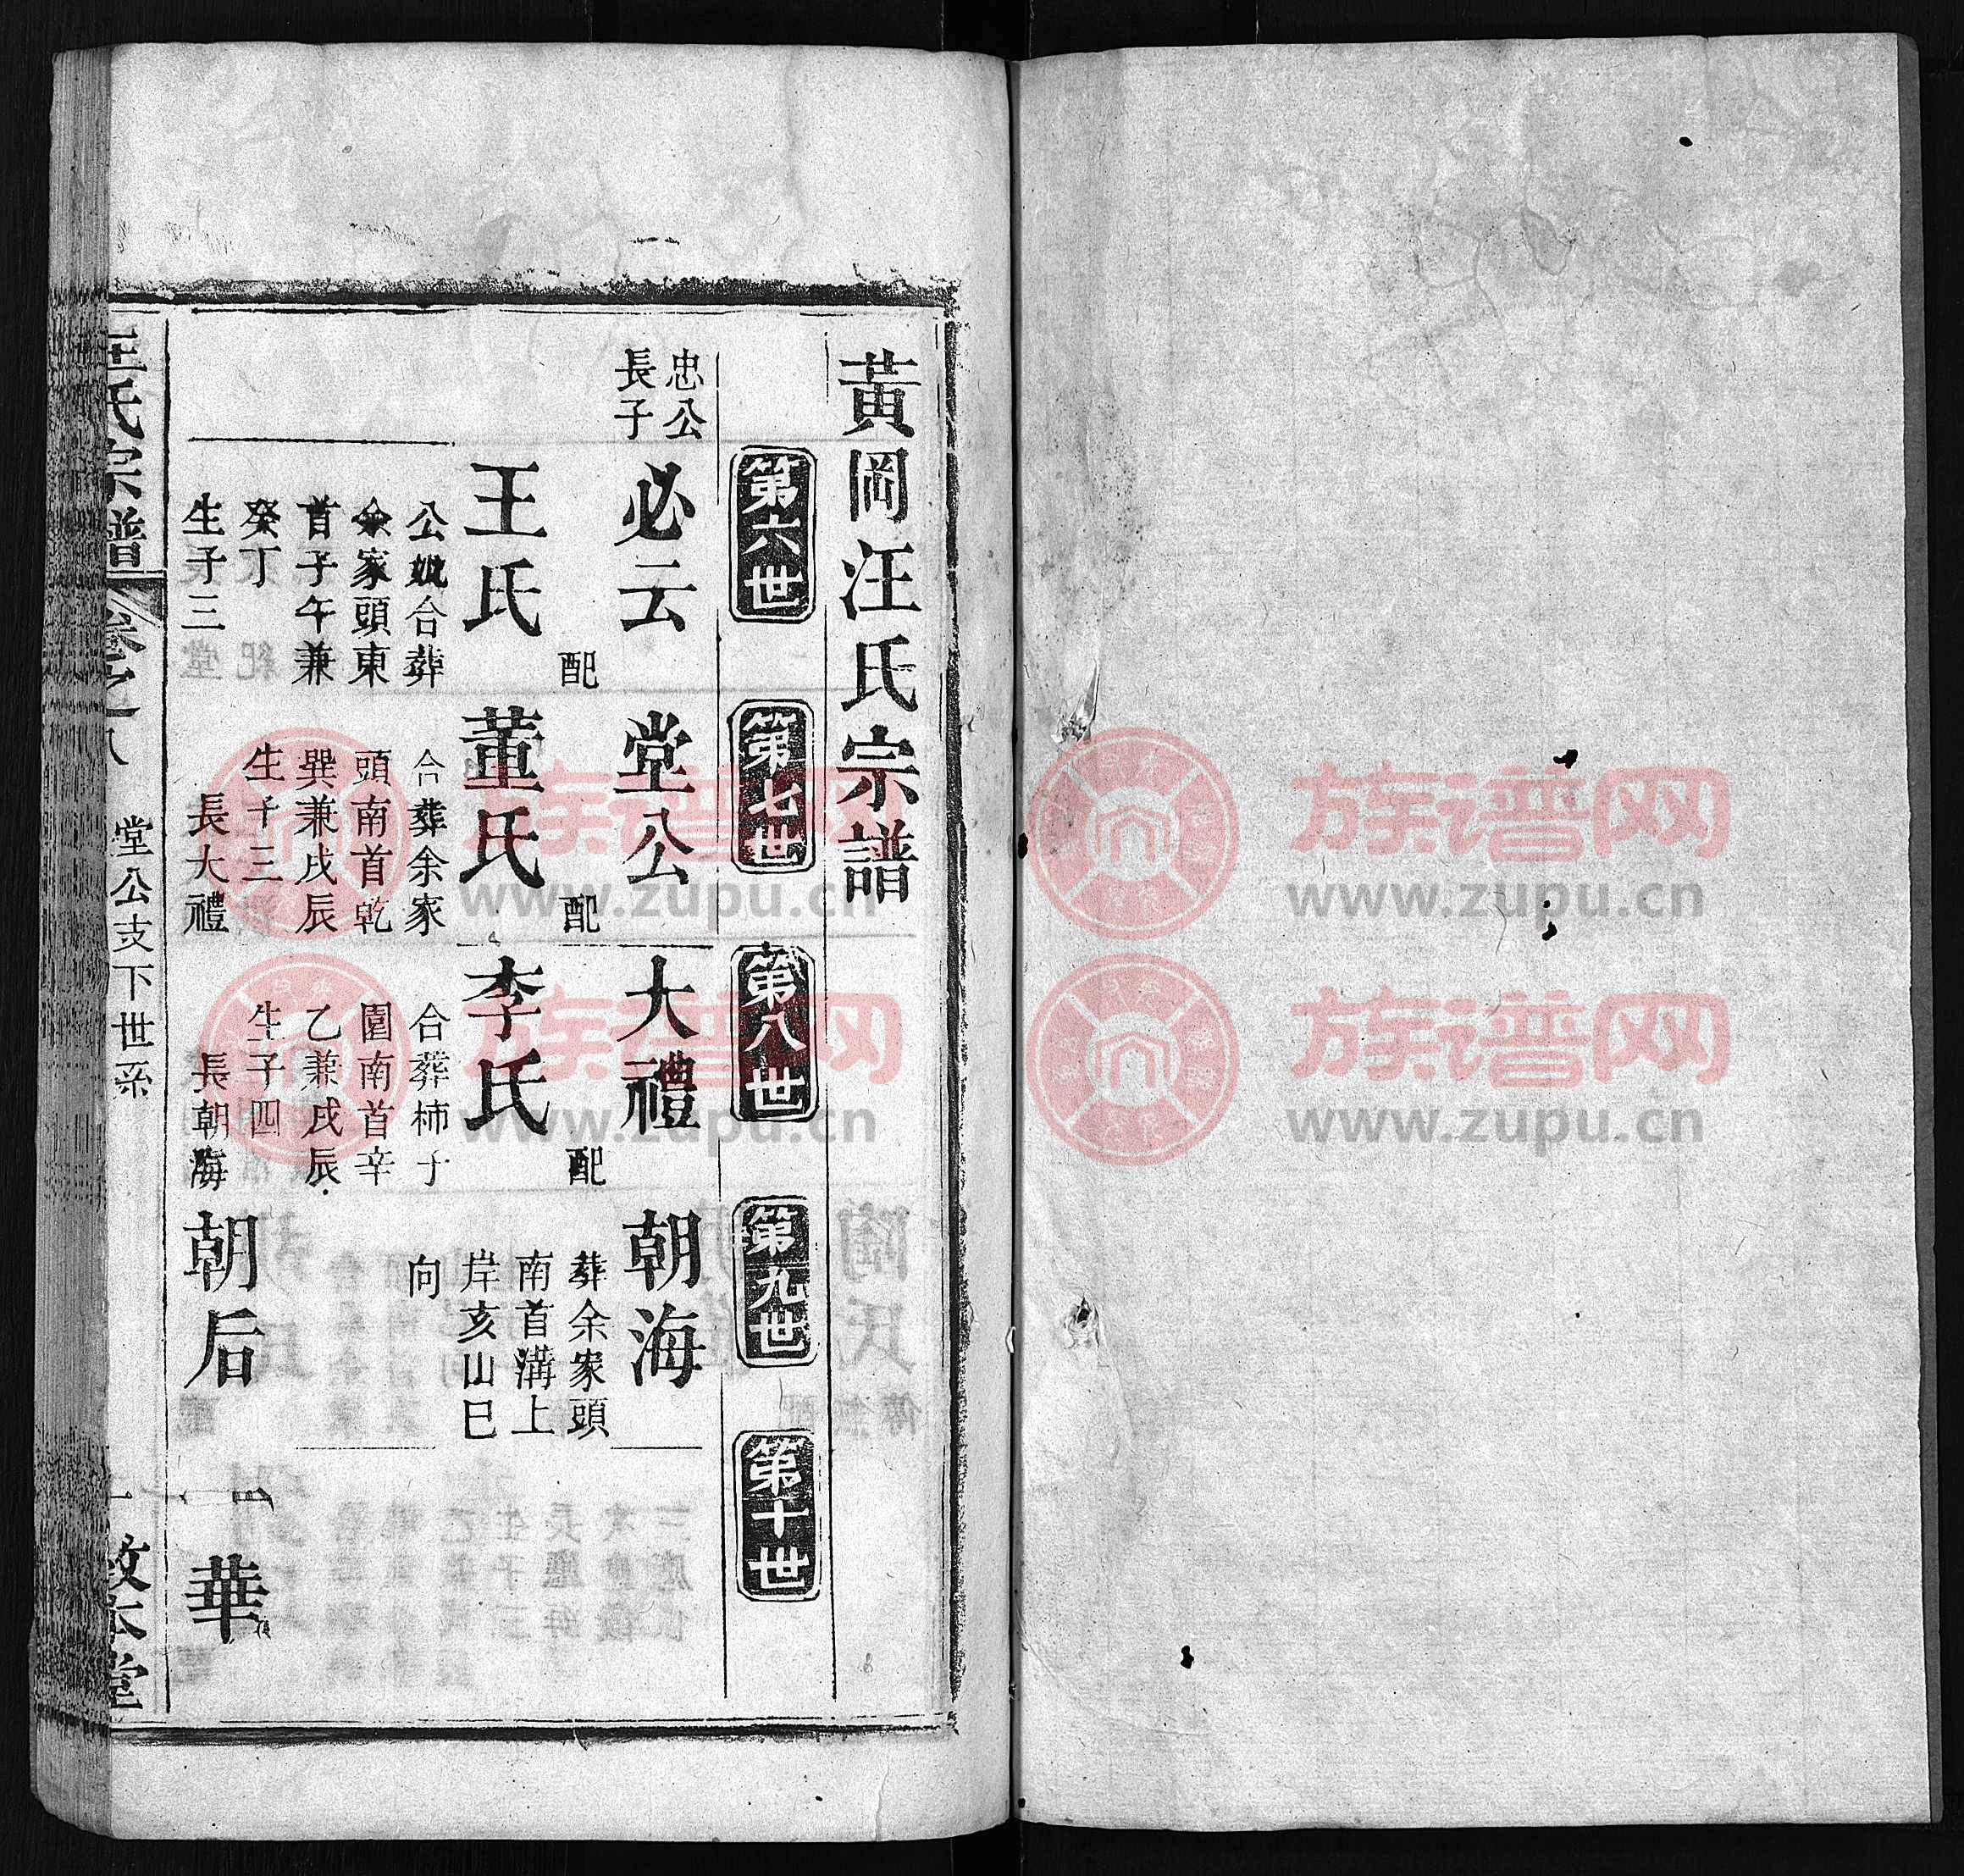 黃岡汪氏宗譜
第六世
第七世
第八世
第九世
第十世
忠公
長子
必云
配
王氏
公妣合葬
余家頭東
首子午兼
癸丁
生子三
堂公
配
董氏
合葬余家
頭南首乾
巽兼戌辰
生子三
長大禮
大禮
配
李氏
合葬柿子
園南首辛
乙兼戌辰
生子四
長朝海
朝海
葬余家頭
南首溝上
岸亥山巳
向
朝后
華
汪氏宗譜
卷之八
堂公支下世系
一
敦本堂
族谱网
www.zupu.cn
族谱网
www.zupu.cn
族谱网
www.zupu.cn
族谱网
www.zupu.cn